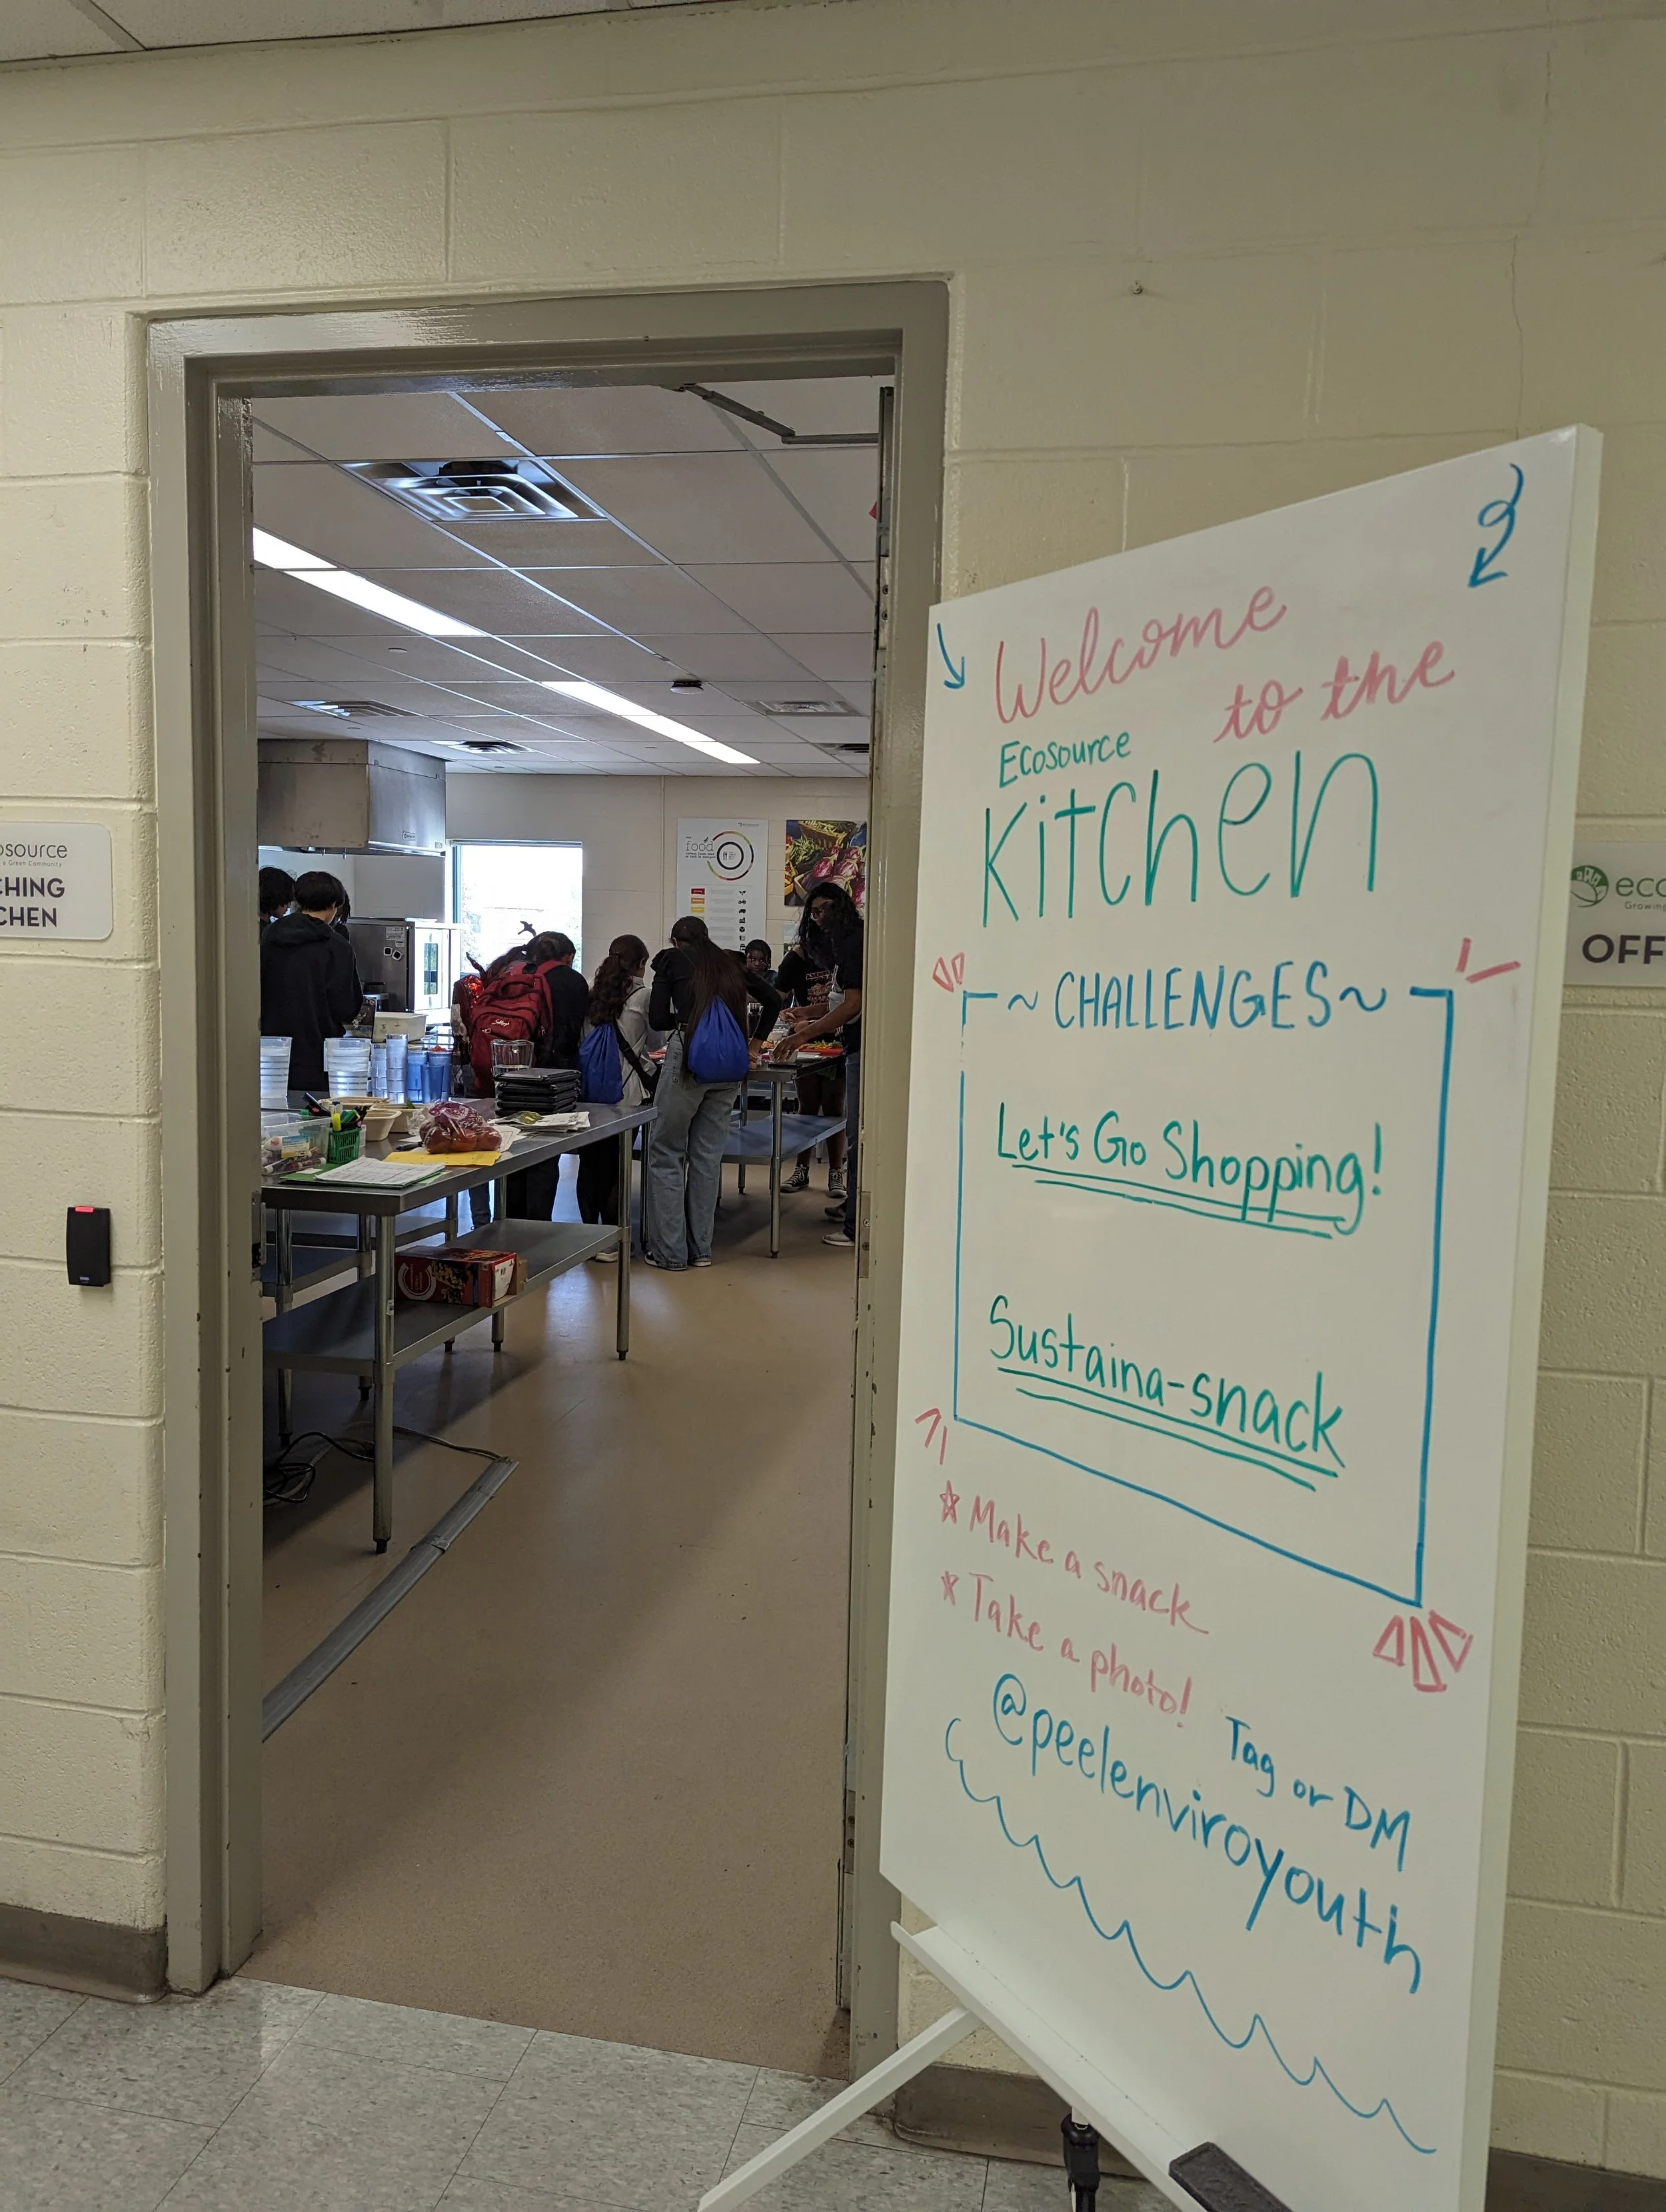 Welcome
to the
Ecosource
Kitchen
~ CHALLENGES ~
Let's Go Shopping!
Sustaina-snack
* Make a snack
* Take a photo!
Tag or DM
@peelenviroyouth
osource
a Green Community
CHING
CHEN
food
eco
Growing
OFF